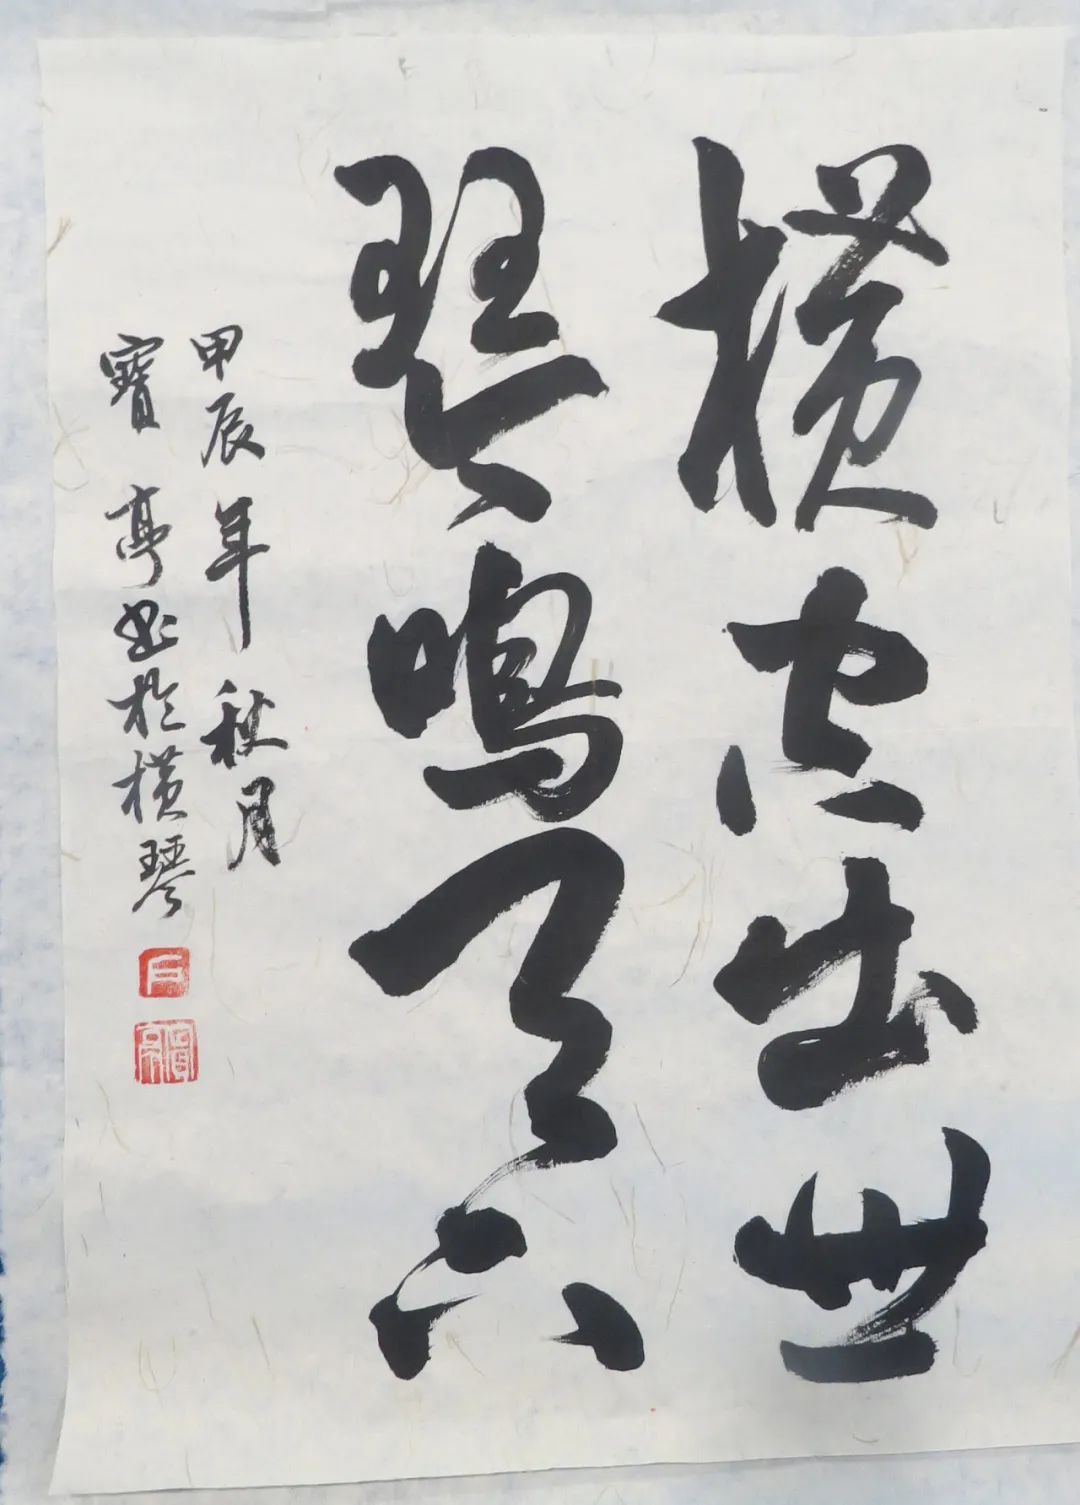 横空出世
琴鳴天下
甲辰年秋月
寶亭书於横琴